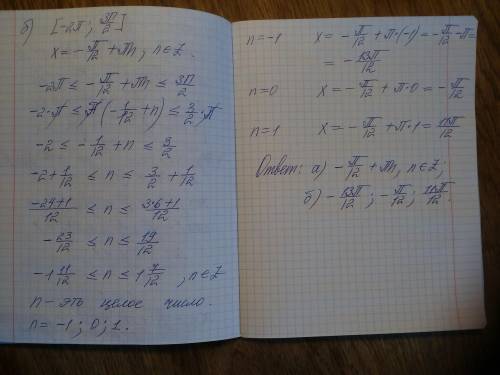 б) [-2π; 3π/2]
x = -π/12 + πn, n∈Z.
-2π ≤ -π/12 + πn ≤ 3π/2
-2·π ≤ π(-1/12 + n) ≤ 3/2·π
-2 ≤ -1/12 + n ≤ 3/2
-2+1/12 ≤ n ≤ 3/2 + 1/12
-24+1/12 ≤ n ≤ 3·6+1/12
-23/12 ≤ n ≤ 19/12
-1 11/12 ≤ n ≤ 1 7/12, n∈Z
n – это целое число.
n = -1; 0; 1.
n=-1 x = -π/12 + π·(-1) = -π/12 - π =
= -13π/12
n=0 x = -π/12 + π·0 = -π/12
n=1 x = -π/12 + π·1 = 11π/12
Ответ: а) -π/12 + πn, n∈Z;
б) -13π/12; -π/12; 11π/12.